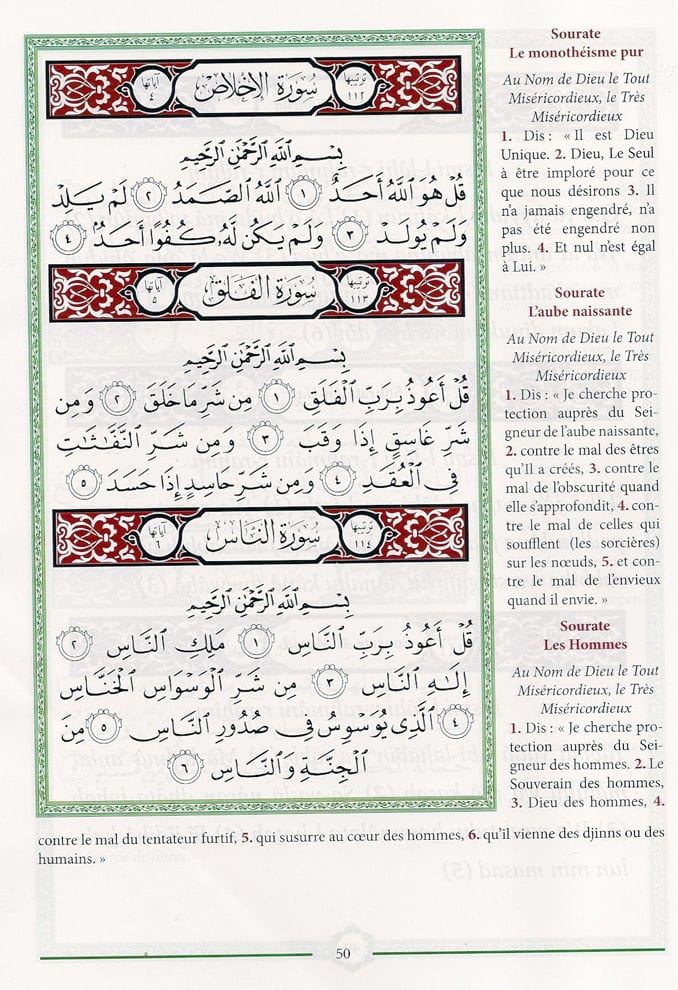 ترتيبها ١١٢ سُورَةُ الإِخْلَاصِ آياتها ٤
بِسْمِ ٱللَّهِ ٱلرَّحْمَٰنِ ٱلرَّحِيمِ
قُلْ هُوَ ٱللَّهُ أَحَدٌ ١ ٱللَّهُ ٱلصَّمَدُ ٢ لَمْ يَلِدْ
وَلَمْ يُولَدْ ٣ وَلَمْ يَكُن لَّهُۥ كُفُوًا أَحَدٌۢ ٤
ترتيبها ١١٣ سُورَةُ الفَلَقِ آياتها ٥
بِسْمِ ٱللَّهِ ٱلرَّحْمَٰنِ ٱلرَّحِيمِ
قُلْ أَعُوذُ بِرَبِّ ٱلْفَلَقِ ١ مِن شَرِّ مَا خَلَقَ ٢ وَمِن
شَرِّ غَاسِقٍ إِذَا وَقَبَ ٣ وَمِن شَرِّ ٱلنَّفَّٰثَٰتِ
فِي ٱلْعُقَدِ ٤ وَمِن شَرِّ حَاسِدٍ إِذَا حَسَدَ ٥
ترتيبها ١١٤ سُورَةُ النَّاسِ آياتها ٦
بِسْمِ ٱللَّهِ ٱلرَّحْمَٰنِ ٱلرَّحِيمِ
قُلْ أَعُوذُ بِرَبِّ ٱلنَّاسِ ١ مَلِكِ ٱلنَّاسِ ٢
إِلَٰهِ ٱلنَّاسِ ٣ مِن شَرِّ ٱلْوَسْوَاسِ ٱلْخَنَّاسِ
٤ ٱلَّذِي يُوَسْوِسُ فِي صُدُورِ ٱلنَّاسِ ٥ مِنَ
ٱلْجِنَّةِ وَٱلنَّاسِ ٦
Sourate
Le monothéisme pur
Au Nom de Dieu le Tout
Miséricordieux, le Très
Miséricordieux
1. Dis : « Il est Dieu
Unique. 2. Dieu, Le Seul
à être imploré pour ce
que nous désirons 3. Il
n'a jamais engendré, n'a
pas été engendré non
plus. 4. Et nul n'est égal
à Lui. »
Sourate
L'aube naissante
Au Nom de Dieu le Tout
Miséricordieux, le Très
Miséricordieux
1. Dis : « Je cherche pro-
tection auprès du Sei-
gneur de l'aube naissante,
2. contre le mal des êtres
qu'Il a créés, 3. contre le
mal de l'obscurité quand
elle s'approfondit, 4. con-
tre le mal de celles qui
soufflent (les sorcières)
sur les nœuds, 5. et con-
tre le mal de l'envieux
quand il envie. »
Sourate
Les Hommes
Au Nom de Dieu le Tout
Miséricordieux, le Très
Miséricordieux
1. Dis : « Je cherche pro-
tection auprès du Sei-
gneur des hommes. 2. Le
Souverain des hommes,
3. Dieu des hommes, 4.
contre le mal du tentateur furtif, 5. qui susurre au cœur des hommes, 6. qu'il vienne des djinns ou des
humains. »
50